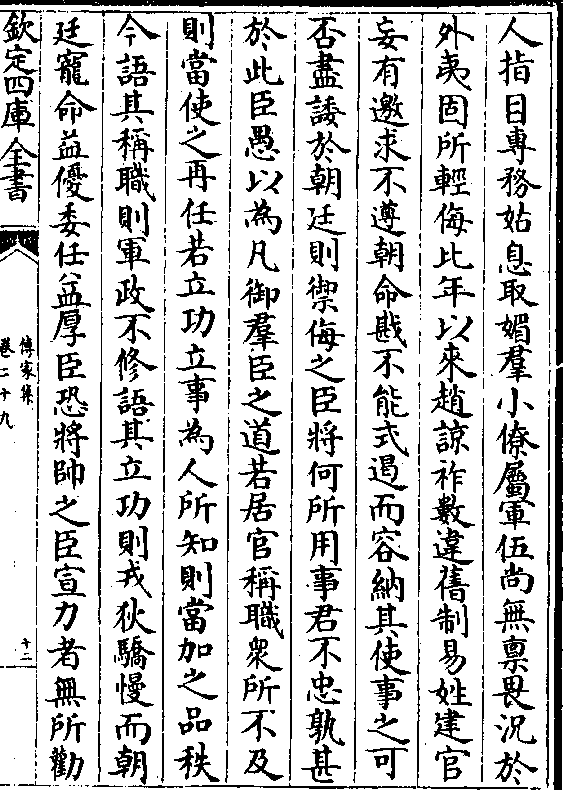 人指目專務姑息取媚羣小僚屬軍伍尚無稟畏況於
外夷固所輕侮比年以來趙諒祚數違舊制易姓建官
妄有邀求不遵朝命戡不能式遏而容納其使事之可
否盡諉於朝廷則禦侮之臣將何所用事君不忠孰甚
於此臣愚以為凡御羣臣之道若居官稱職衆所不及
則當使之再任若立功立事為人所知則當加之品秩
今語其稱職則軍政不修語其立功則戎狄驕慢而朝
廷寵命益優委任益厚臣恐將帥之臣宣力者無所勸
欽定四庫全書
傳家集
卷二十九
十二